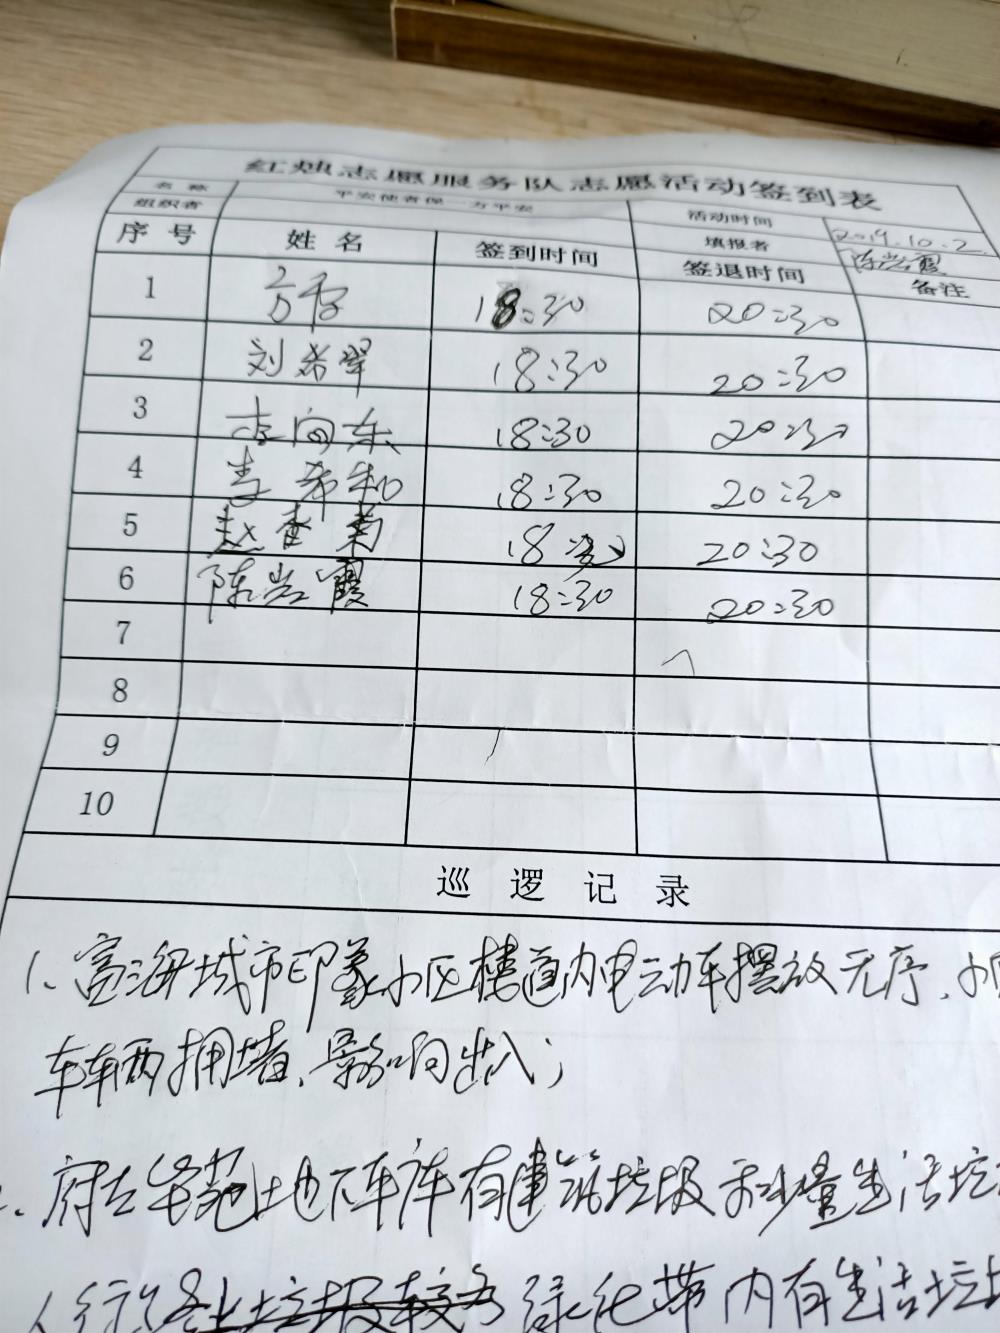 红烛志愿服务队志愿活动签到表
名 称 平安使者保一方平安 活动时间 2019.10.2
组织者 填报者 陈岩霞
序 号 姓 名 签到时间 签退时间 备注
1 18:30 20:30
2 刘希翠 18:30 20:30
3 李向东 18:30 20:30
4 李希和 18:30 20:30
5 赵春菊 18: 20:30
6 陈岩霞 18:30 20:30
7
8
9
10
巡 逻 记 录
1、富海城市印象小区楼道内电动车摆放无序、小
车车两拥堵、影响出入;
府左华苑地下车库有建筑垃圾和少量生活垃
人行 绿化带内有生活垃